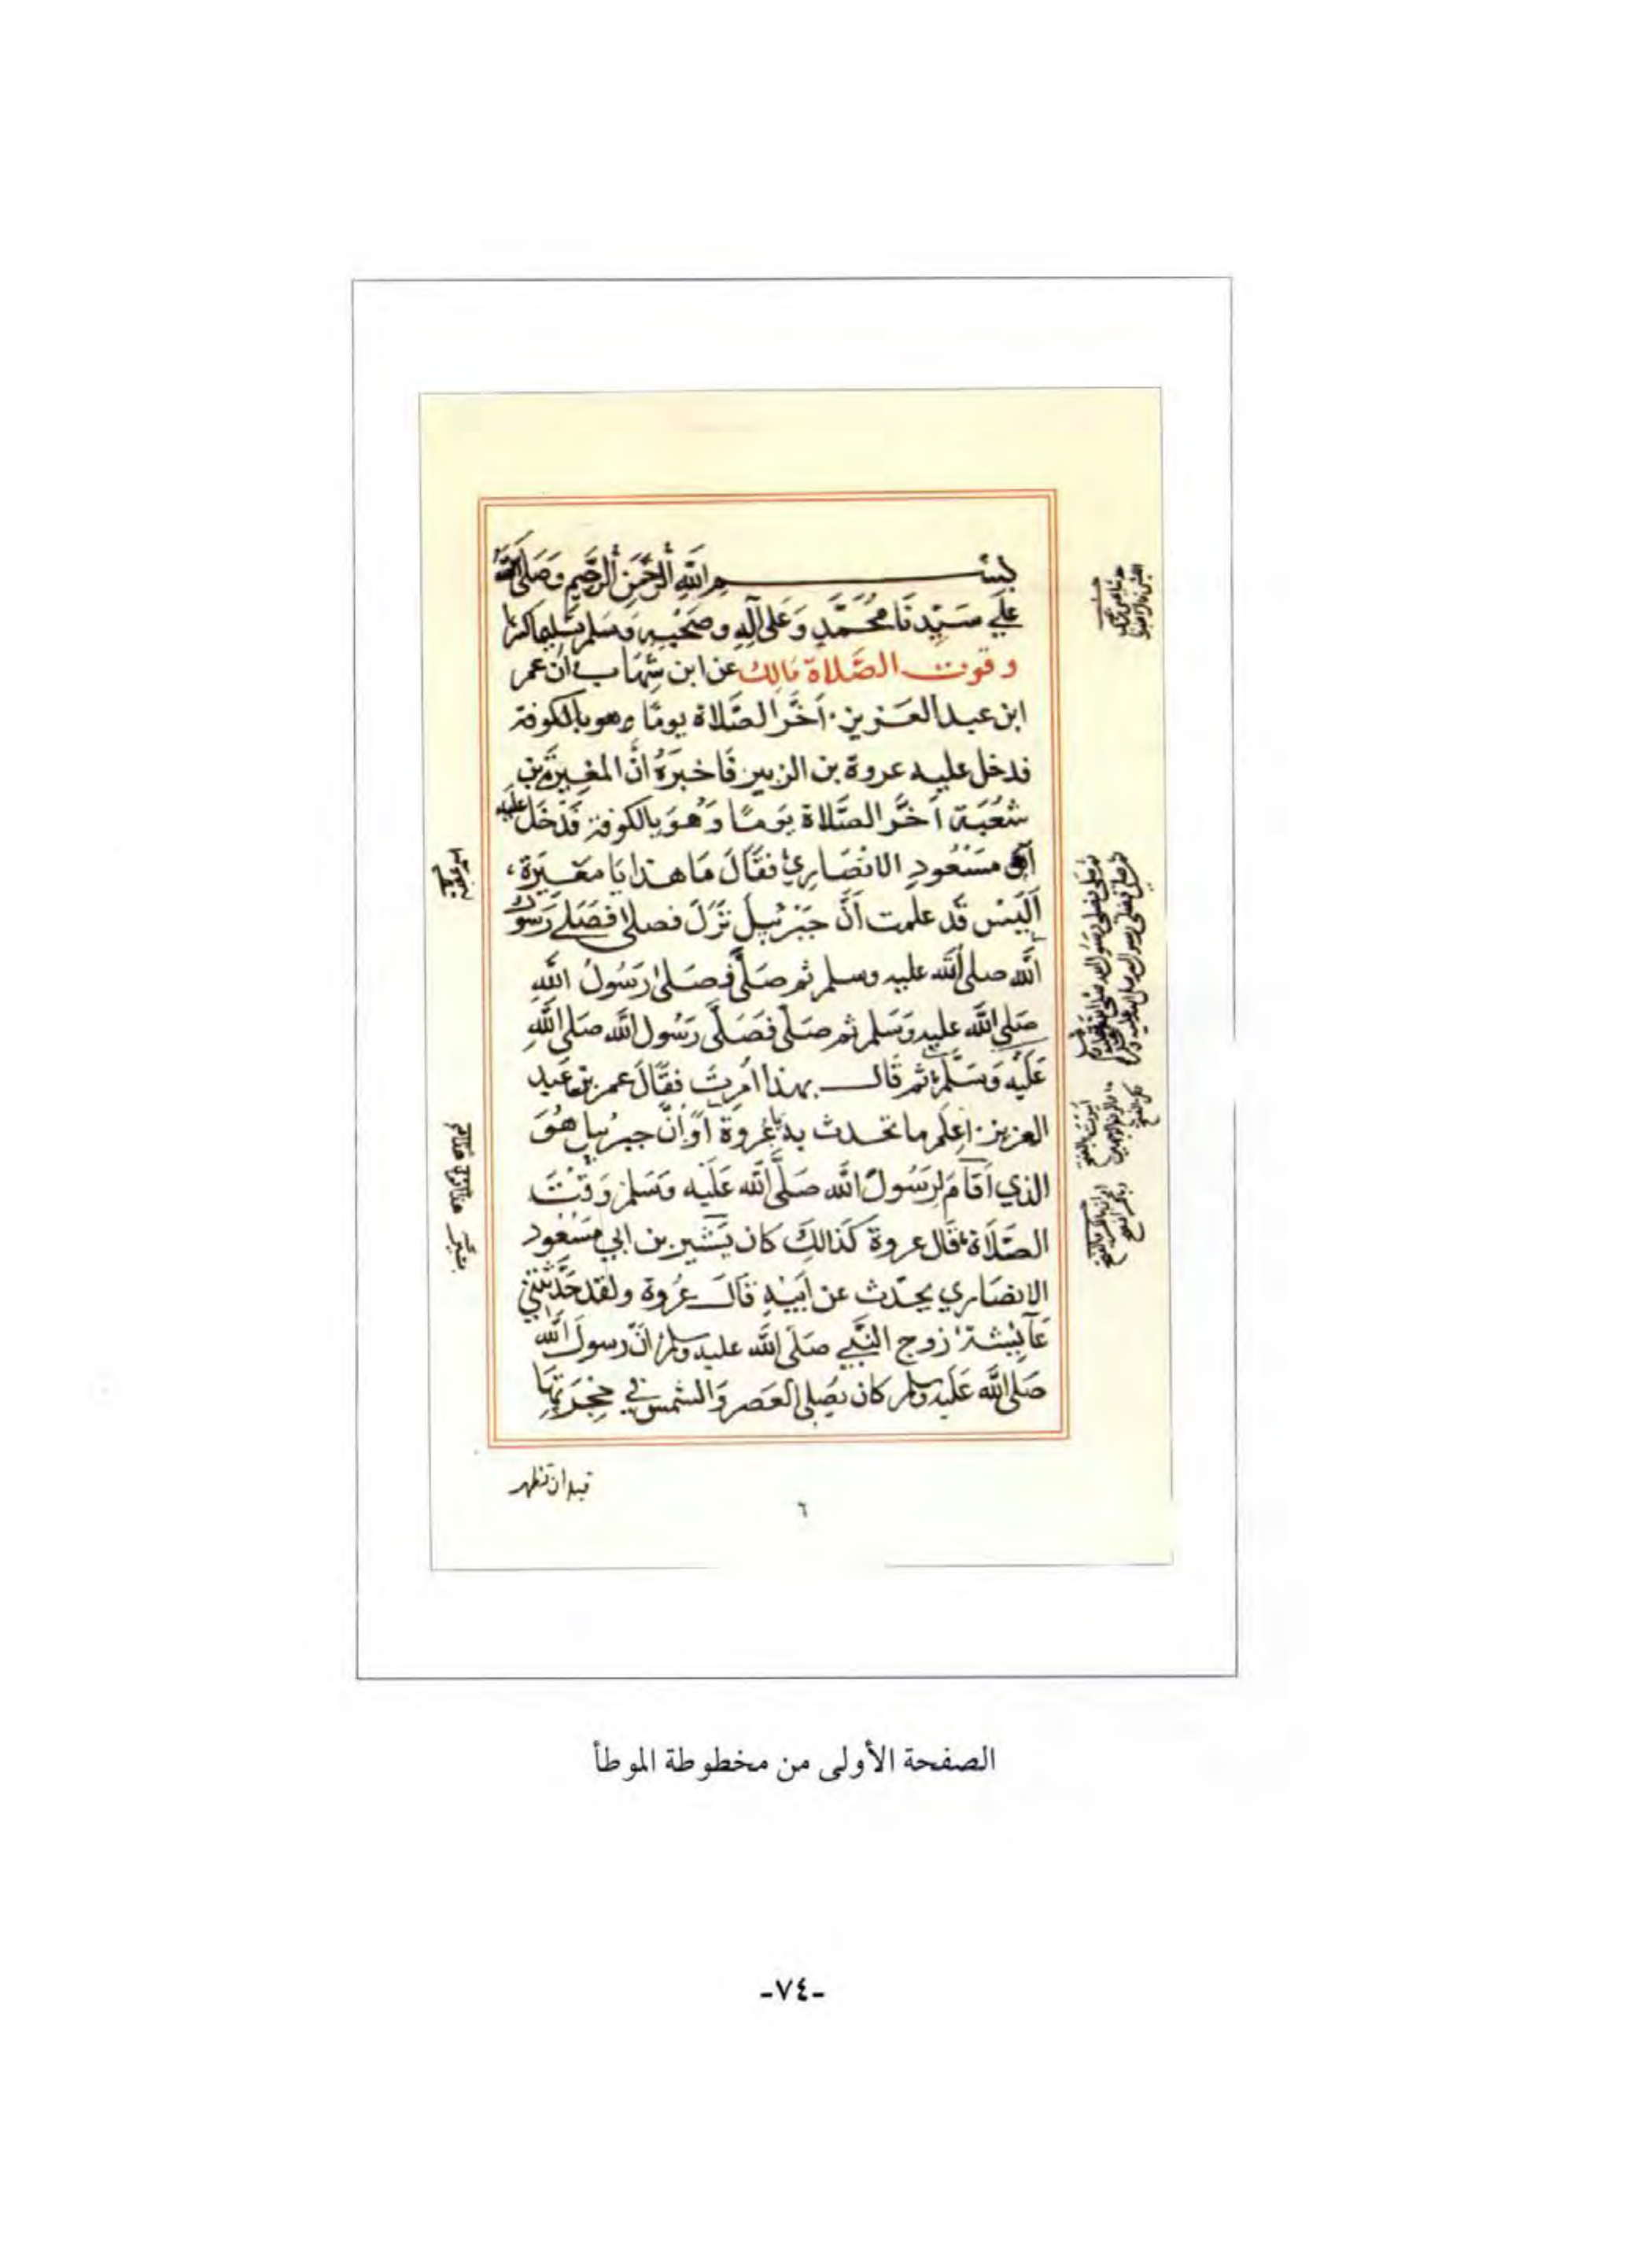 بسم الله الرحمن الرحيم وصلى الله
علي سيدنا محمد وعلى آله وصحبه وسلم تسليما كثيرا
وقوت الصلاة مالك عن ابن شهاب ان عمر
ابن عبد العزيز أخر الصلاة يوما وهو بالكوفة
فدخل عليه عروة بن الزبير فاخبره ان المغيرة بن
شعبة أخر الصلاة يوما وهو بالكوفة فدخل عليه
أبو مسعود الانصاري فقال ما هذا يا مغيرة
أليس قد علمت أن جبرئيل نزل فصلى فصلى رسول
الله صلى الله عليه وسلم ثم صلى فصلى رسول الله
صلى الله عليه وسلم ثم صلى فصلى رسول الله صلى الله
عليه وسلم ثم قال بهذا امرت فقال عمر بن عبد
العزيز اعلم ما تحدث به يا عروة أو أن جبرئيل هو
الذي أقام لرسول الله صلى الله عليه وسلم وقت
الصلاة قال عروة كذالك كان بشير بن ابي مسعود
الانصاري يحدث عن أبيه قال عروة ولقد حدثتني
عآئشة زوج النبي صلى الله عليه وسلم أن رسول الله
صلى الله عليه وسلم كان يصلي العصر والشمس في حجرتها
قبل ان تظهر
٦
الصفحة الأولى من مخطوطة الموطأ
-٧٤-